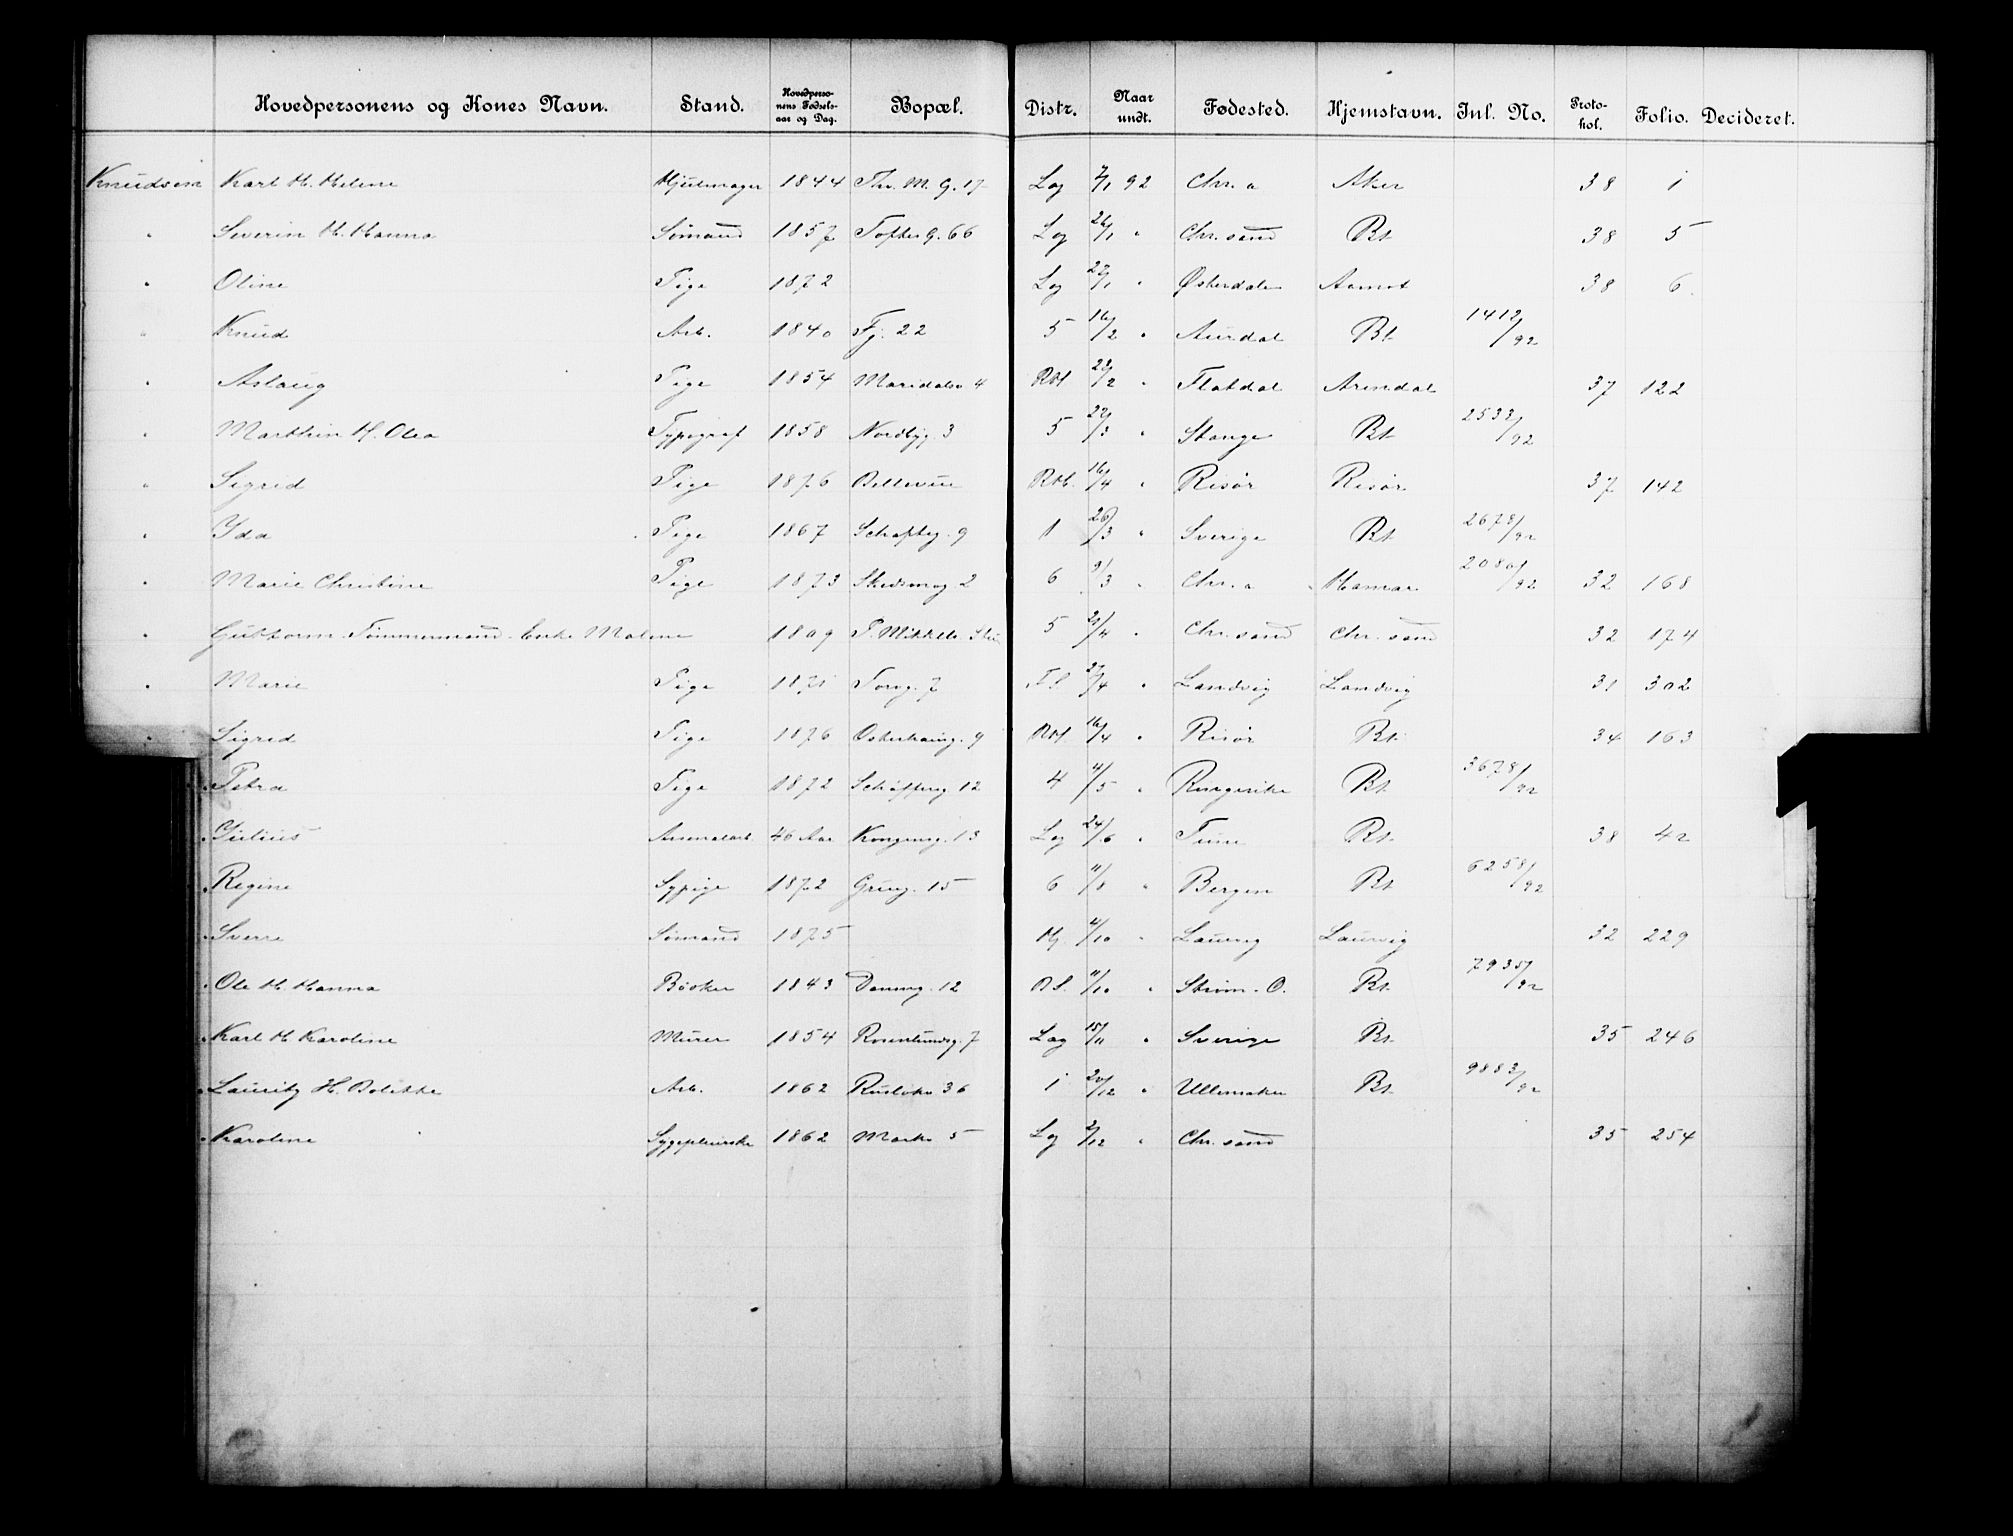 Hovedpersonens og Kones Navn. Stand. Hovedpersonens Fødselsaar og Dag. Bopæl. Distr. Naar undt. Fødested. Hjemstavn. Inl. No. Protokol. Folio. Decideret.
Knudsen Karl H. Helene Hjulmager 1844 Thv. M. G. 17 Log 7/1 92 Chr.a Aker 38 1
" Severin H. Hanna Sømand 1857 Tofteg. 66 Log 26/1 " Chr.sand Bt. 38 5
" Oline Pige 1872 Log 27/1 " Østerdalen Aamot 38 6
" Knud Arb. 1840 Fj. 22 5 16/2 " Aurdal Bt. 1412/92
" Aslaug Pige 1854 Maridalsv 4 RH. 22/2 " Flatdal Arendal 37 122
" Marthin H. Olea Typograf 1858 Nordbyg. 3 5 22/3 " Stange Bt. 2532/92
" Sigrid Pige 1876 Bellevue RH. 16/4 " Risør Risør 37 142
" Yda Pige 1867 1 26/3 " Sverige Bt. 2678/92
" Marie Christine Pige 1873 Skedsmog 2 6 9/3 " Chr.a Hamar 2080/92 32 168
" Guttorm Tømmermand Enke Malene 1809 5 " Chr.sand Chr.sand 32 174
" Marie Pige 1871 Torvg. 7 27/4 " Landvig Landvig 31 302
" Sigrid Pige 1876 Osterhausg. 9 RH. 16/4 " Risør Bt. 34 163
" Petra Pige 1872 12 4 4/5 " Ringerike Bt. 3678/92
" Julius Arsenalarb. 46 Aar Kongensg. 13 Log 24/6 " Tune Bt. 38 42
" Regine Sypige 1872 Grung. 15 6 11/8 " Bergen Bt. 6258/92
" Sverre Sømand 1875 Hj. 4/10 " Laurvig Laurvig 32 229
" Ole H. Hanna Bøsker 1843 Dammg. 12 11/10 " Strøm. O. Bt. 7935/92
" Karl H. Karoline Murer 1854 Rosenlundsg. 7 Log 15/11 " Sverige Bt. 35 246
" Lauritz H. Bolette Arb. 1862 Rusløkv 36 1 20/12 " Ullensaker Bt. 9883/92
" Karoline Sygepleierske 1862 Markv 5 Log 2/12 " Chr.sand 35 254